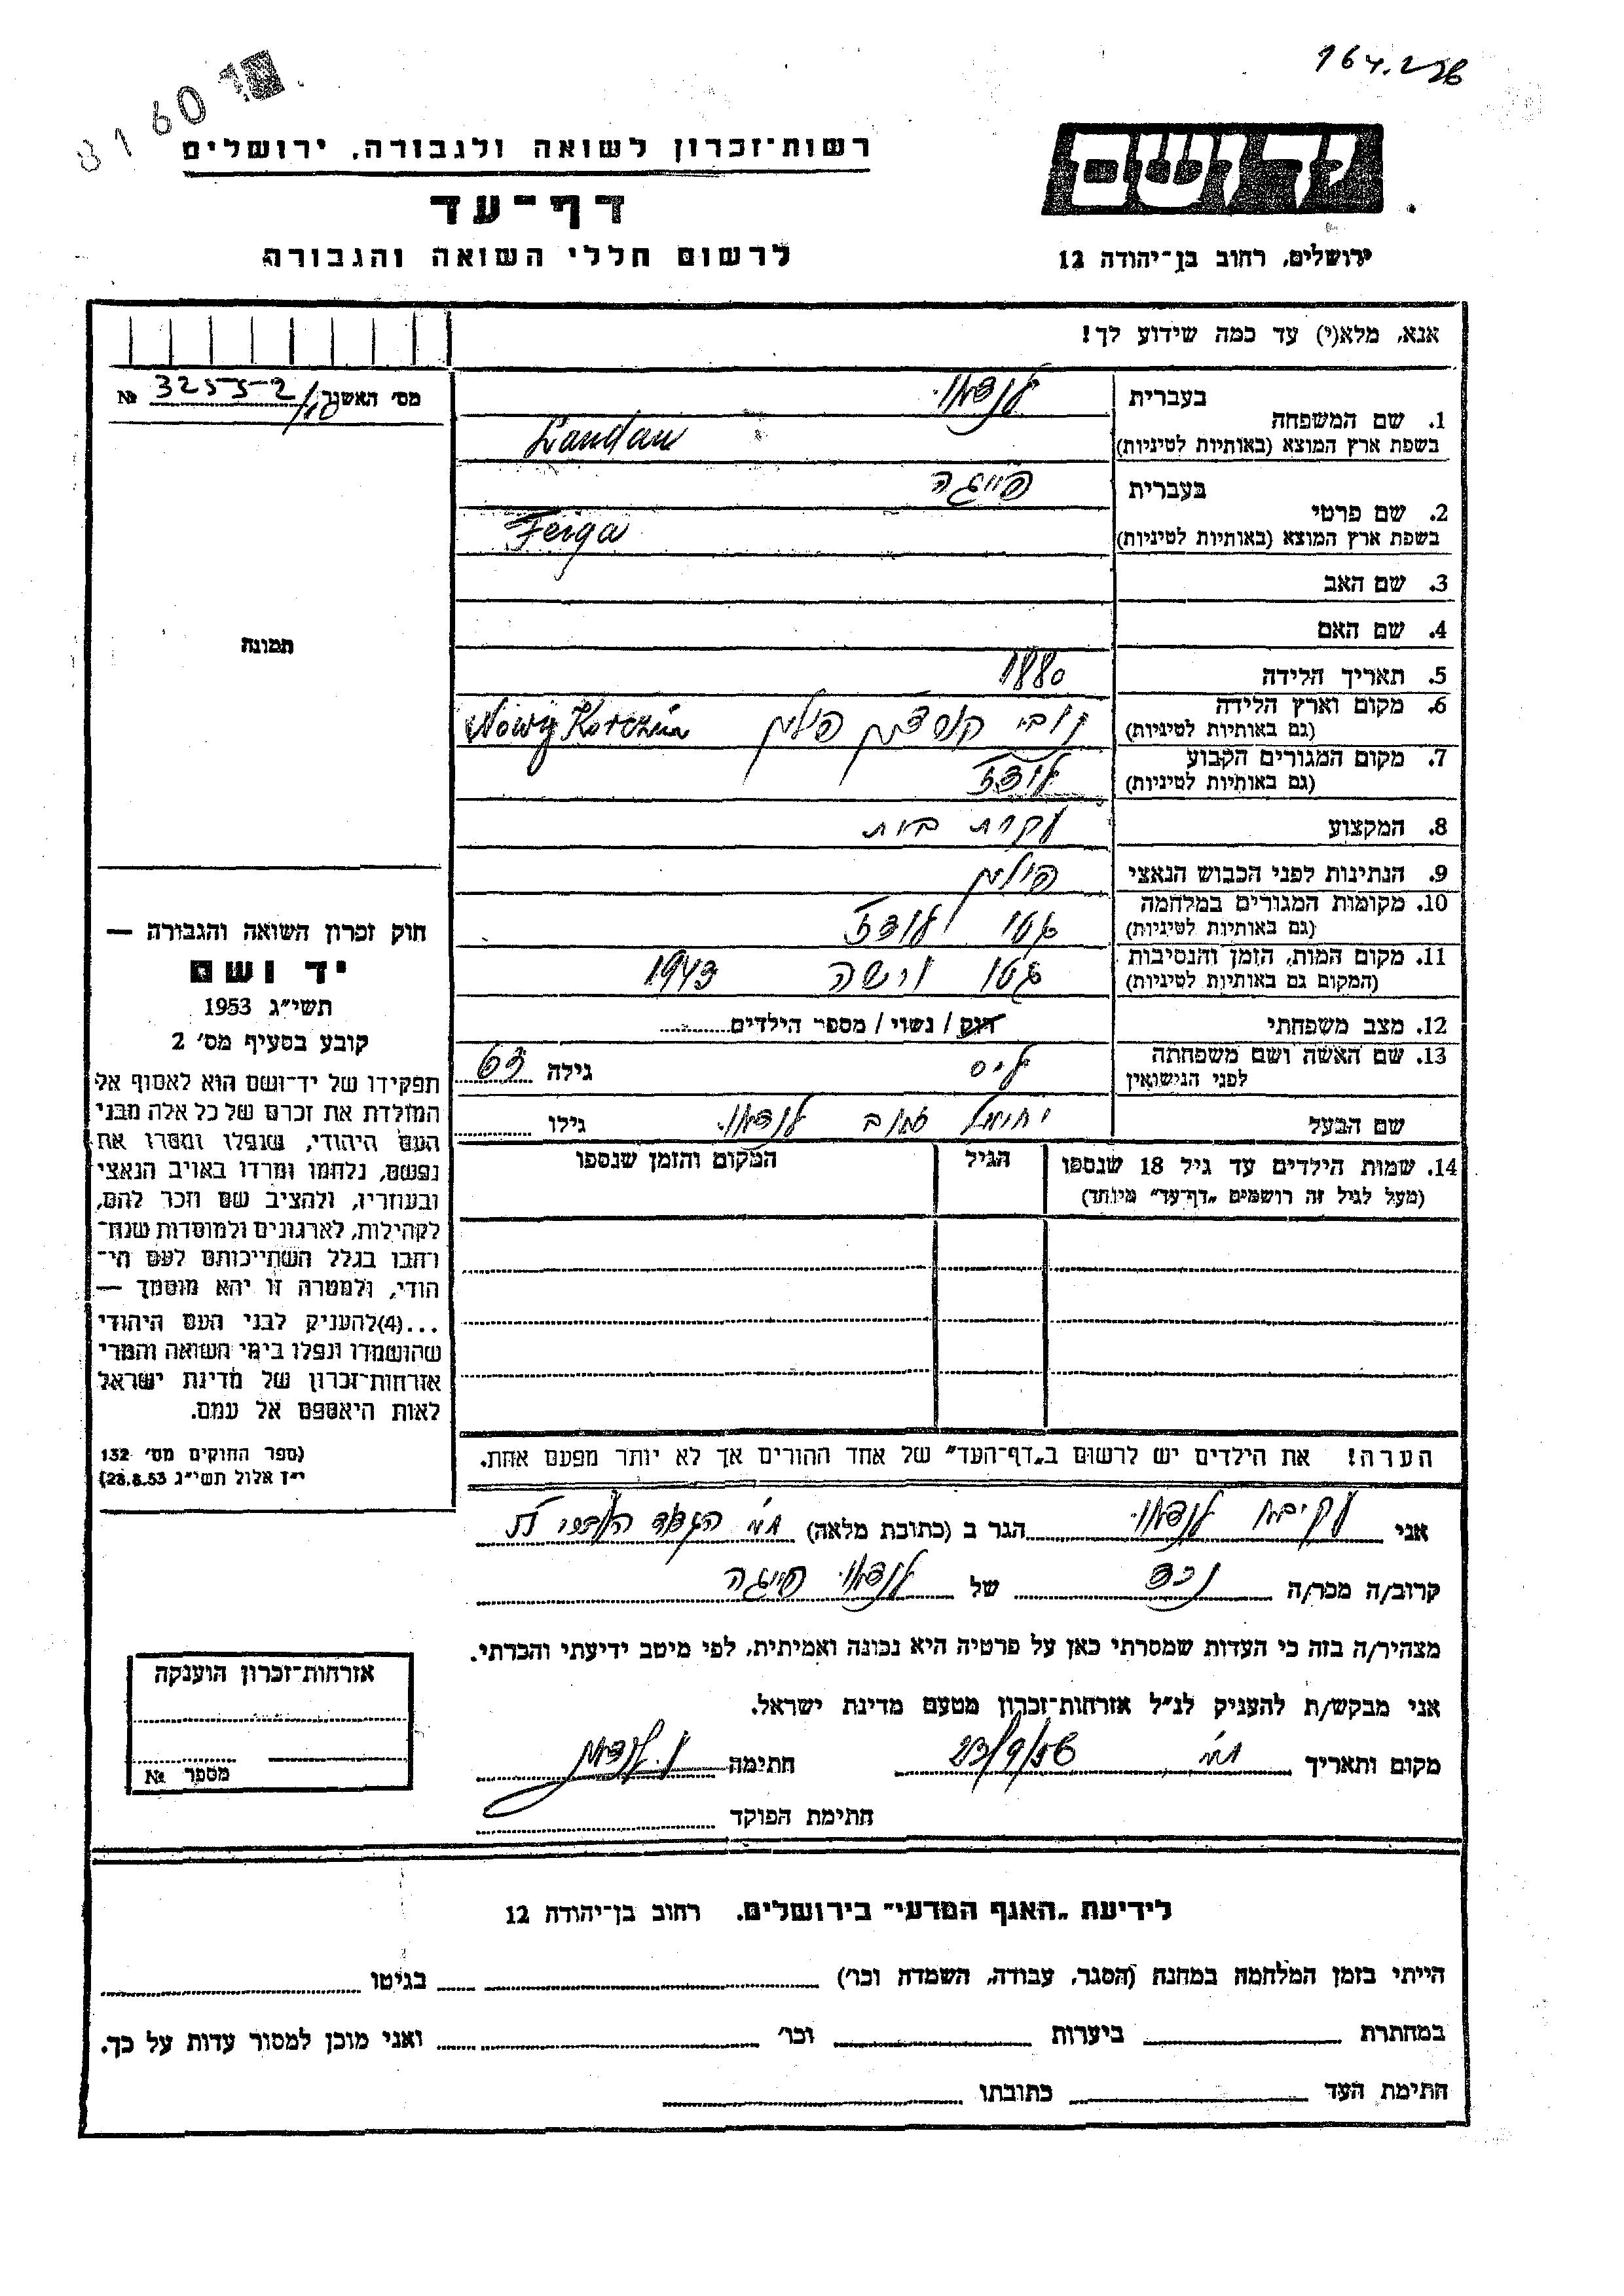 164.226
81607
רשות־זכרון לשואה ולגבורה, ירושלים
דף־עד
לרשום חללי השואה והגבורה
יד ושם
ירושלים, רחוב בן־יהודה 12
אנא, מלא(י) עד כמה שידוע לך!
מס׳ האשנר 3255-2 №
1. שם המשפחה
בעברית לנדאו
בשפת ארץ המוצא (באותיות לטיניות) Landau
2. שם פרטי
בעברית פייגה
בשפת ארץ המוצא (באותיות לטיניות) Feiga
3. שם האב
4. שם האם
5. תאריך הלידה 1880
6. מקום וארץ הלידה
(גם באותיות לטיניות) נובי פולין Nowy Korczin
7. מקום המגורים הקבוע
(גם באותיות לטיניות) לודז
8. המקצוע עקרת בית
9. הנתינות לפני הכבוש הנאצי פולין
10. מקומות המגורים במלחמה
(גם באותיות לטיניות) גטו לודז
11. מקום המות, הזמן והנסיבות
(המקום גם באותיות לטיניות) גטו ורשה 1943
12. מצב משפחתי רוק / נשוי / מספר הילדים
13. שם האשה ושם משפחתה
לפני הנישואין ליס גילה 63
שם הבעל יחיאל זאב לנדאו גילו
14. שמות הילדים עד גיל 18 שנספו הגיל המקום והזמן שנספו
(מעל לגיל זה רושמים „דף־עד״ מיוחד)
הערה! את הילדים יש לרשום ב„דף־העד״ של אחד ההורים אך לא יותר מפעם אחת.
תמונה
חוק זכרון השואה והגבורה —
יד ושם
תשי״ג 1953
קובע בסעיף מס׳ 2
תפקידו של יד־ושם הוא לאסוף אל
המולדת את זכרם של כל אלה מבני
העם היהודי, שנפלו ומסרו את
נפשם, נלחמו ומרדו באויב הנאצי
ובעוזריו, ולהציב שם וזכר להם,
לקהילות, לארגונים ולמוסדות שנח־
רחבו בגלל השתייכותם לעם הי־
הודי, ולמטרה זו יהא מוסמך —
...(4)להעניק לבני העם היהודי
שהושמדו ונפלו בימי השואה והמרי
אזרחות־זכרון של מדינת ישראל
לאות היאספם אל עמם.
(ספר החוקים מס׳ 132
י״ז אלול תשי״ג 28.8.53)
אני עקיבא לנדאו הגר ב (כתובת מלאה)
קרוב/ה מכר/ה נכד של לנדאו פייגה
מצהיר/ה בזה כי העדות שמסרתי כאן על פרטיה היא נכונה ואמיתית, לפי מיטב ידיעתי והכרתי.
אני מבקש/ת להעניק לנ״ל אזרחות־זכרון מטעם מדינת ישראל.
מקום ותאריך 23/9/56 חתימה ע. לנדאו
חתימת הפוקד
אזרחות־זכרון הוענקה
מספר №
לידיעת „האגף המדעי״ בירושלים, רחוב בן־יהודה 12
הייתי בזמן המלחמה במחנה (הסגר, עבודה, השמדה וכו׳) בגיטו
במחתרת ביערות וכו׳ ואני מוכן למסור עדות על כך.
חתימת העד כתובתו